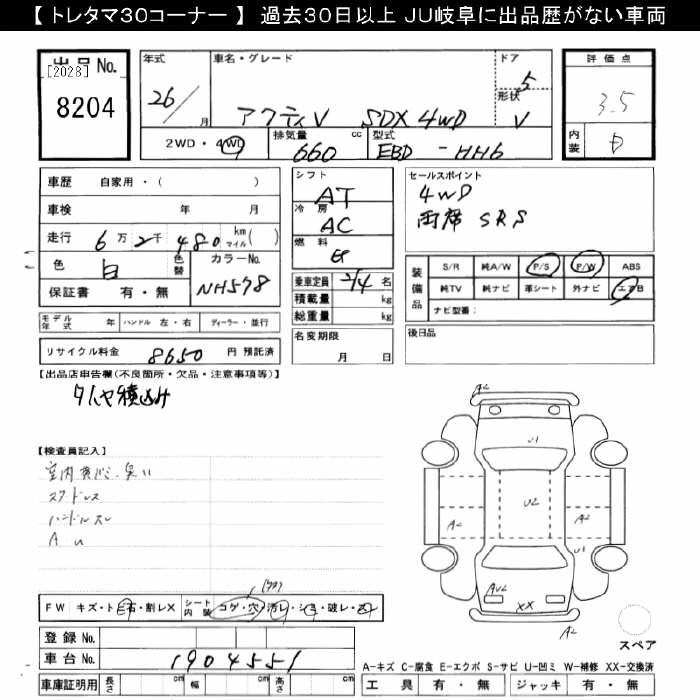 【 トレタマ30コーナー 】 過去30日以上 JU岐阜に出品歴がない車両
出品No.
[2028]
8204
年式
26/
月
車名・グレード
アクティV SDX 4WD
ドア
5
形状
V
2WD・4WD
排気量
660
cc
型式
EBD - HH6
評価点
3.5
内装
D
車歴 自家用・( )
車検 年 月
走行 6万 2千 480 km マイル( )
色 白 色替 カラーNo.
保証書 有・無 NH578
モデル年式 年 ハンドル 左・右 ディーラー・並行
リサイクル料金 8650 円 預託済
シフト
AT
冷房
AC
燃料
乗車定員 2/4 名
積載量 kg
総重量 kg
名変期限
月 日
セールスポイント
4WD
両席 SRS
装備品
S/R 純A/W P/S P/W ABS
純TV 純ナビ 革シート 外ナビ エアB
ナビ型番:
後日品
【出品店申告欄(不良箇所・欠品・注意事項等)】
タイヤ積込み
【検査員記入】
スタッドレス
ハンドルスレ
A U
FW キズ・トビ石・割レX シート内装 コゲ・穴・汚レ・シミ・破レ・スレ
登録No.
車台No. 1904551
車庫証明用 長さ cm 幅 cm 高さ cm
A2
U1
U2
A2
A2
U1
AU2
XX
A2
スペア
A-キズ C-腐食 E-エクボ S-サビ U-凹ミ W-補修 XX-交換済
工具 有・無 ジャッキ 有・無